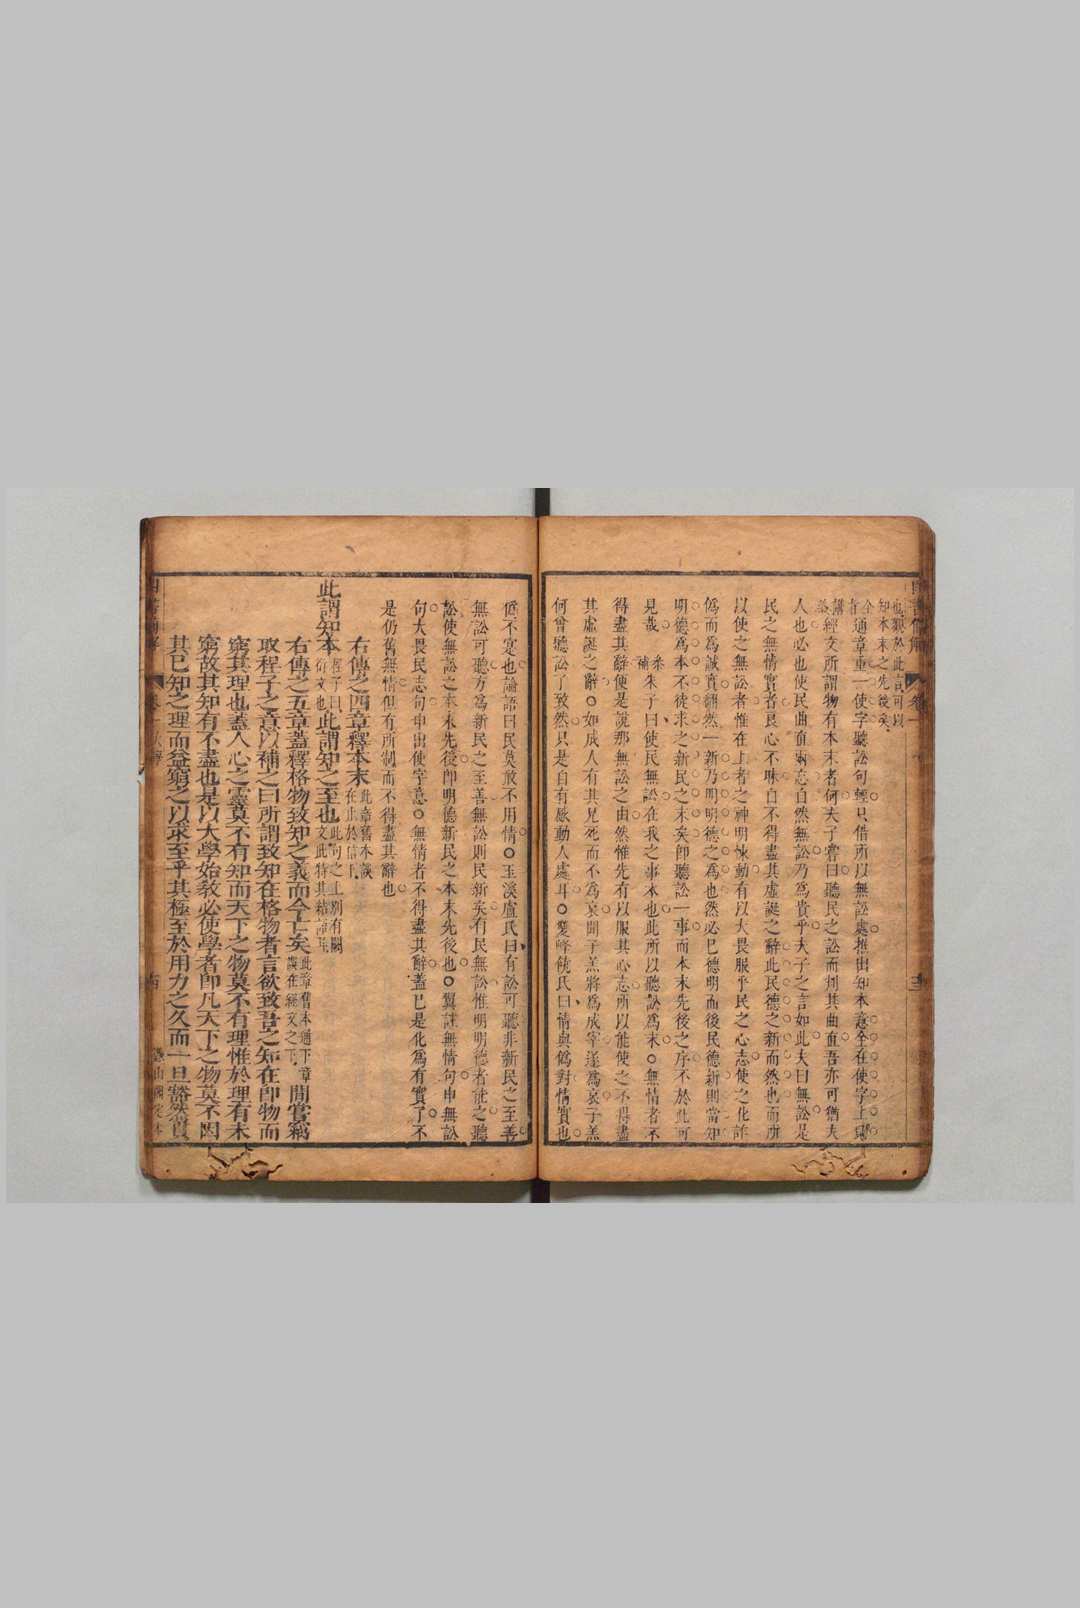 也觀於此言可以
知本末之先後矣
全通章重一使字聽訟句輕只借所以無訟處推出知本意全在使字上見
講經文所謂物有本末者何夫子嘗曰聽民之訟而判其曲直吾亦可猶夫
人也必也使民曲直兩忘自然無訟乃為貴乎夫子之言如此夫曰無訟是
民之無情實者良心不昧自不得盡其虛誕之辭此民德之新而然也而所
以使之無訟者惟在上者之神明悚動有以大畏服乎民之心志使之化詐
偽而為誠真翻然一新乃明明德之為也然必己德明而後民德新則當知
明德為本不徒求之新民之末矣即聽訟一事而本末先後之序不於此可
見哉
參補朱子曰使民無訟在我之事本也此所以聽訟為末○無情者不
得盡其辭便是說那無訟之由然惟先有以服其心志所以能使之不得盡
其虛誕之辭○如成人有其兄死而不為衰聞子羔將為成宰遂為衰子羔
何曾聽訟了致然只是自有感動人處耳○雙峰饒氏曰情與偽對情實也
偽不寔也論語曰民莫敢不用情○玉溪盧氏曰有訟可聽非新民之至善
無訟可聽方為新民之至善無訟則民新矣有民無訟惟明明德者能之聽
訟使無訟之本末先後即明德新民之本末先後也○翼註無情句申無訟
句大畏民志句申出使字意○無情者不得盡其辭蓋已是化為有實了不
是仍舊無情但有所制而不得盡其辭也
右傳之四章釋本末此章舊本誤在止於信下
此謂知本程子曰衍文也此謂知之至也此句之上別有闕文此特其結語耳
右傳之五章蓋釋格物致知之義而今亡矣此章舊本通下章誤在經文之下間嘗竊
取程子之意以補之曰所謂致知在格物者言欲致吾之知在即物而
窮其理也蓋人心之靈莫不有知而天下之物莫不有理惟於理有未
窮故其知有不盡也是以大學始教必使學者即凡天下之物莫不因
其已知之理而益窮之以求至乎其極至於用力之久而一旦豁然貫